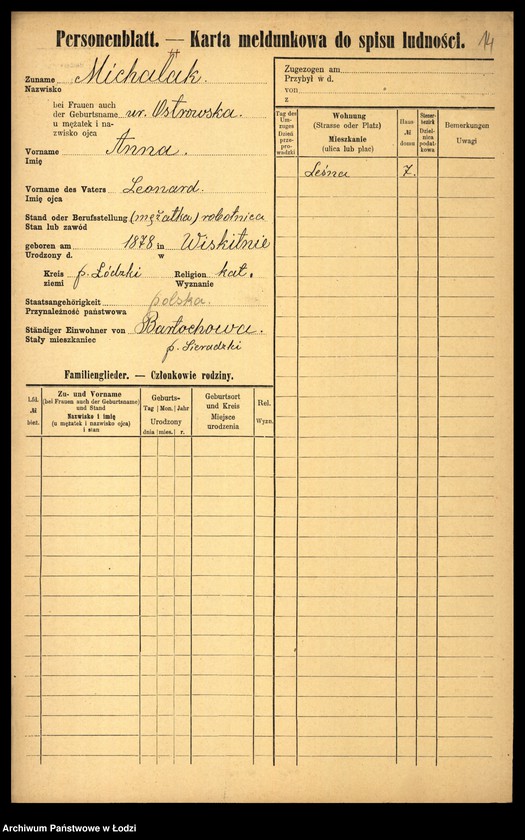 Personenblatt. — Karta meldunkowa do spisu ludności.
14
Zuname Michalak.
Nazwisko
bei Frauen auch
der Geburtsname ur. Ostrowska.
u mężatek i na-
zwisko ojca
Vorname Anna.
Imię
Vorname des Vaters Leonard.
Imię ojca
Stand oder Berufsstellung (mężatka) robotnica
Stan lub zawód
geboren am 1878 in Wiskitnie
Urodzony d. w
Kreis p. Łódzki Religion kat.
ziemi Wyznanie
Staatsangehörigkeit polska.
Przynależność państwowa
Ständiger Einwohner von Bartochowa.
Stały mieszkaniec p. Sieradzki
Familienglieder. — Członkowie rodziny.
Lfd. № bież.
Zu- und Vorname
(bei Frauen auch der Geburtsname)
und Stand
Nazwisko i imię
(u mężatek i nazwisko ojca)
i stan
Geburts-
Tag Mon. Jahr
Urodzony
dnia mies. r.
Geburtsort
und Kreis
Miejsce
urodzenia
Rel.
Wyzn.
Zugezogen am
Przybył w d.
von
z
Tag des
Um-
zuges
Dzień
prze-
pro-
wadzki
Wohnung
(Strasse oder Platz)
Mieszkanie
(ulica lub plac)
Haus-
№
domu
Steuer-
bezirk
Dziel-
nica
podat-
kowa
Bemerkungen
Uwagi
Leśna 7.
Archiwum Państwowe w Łodzi